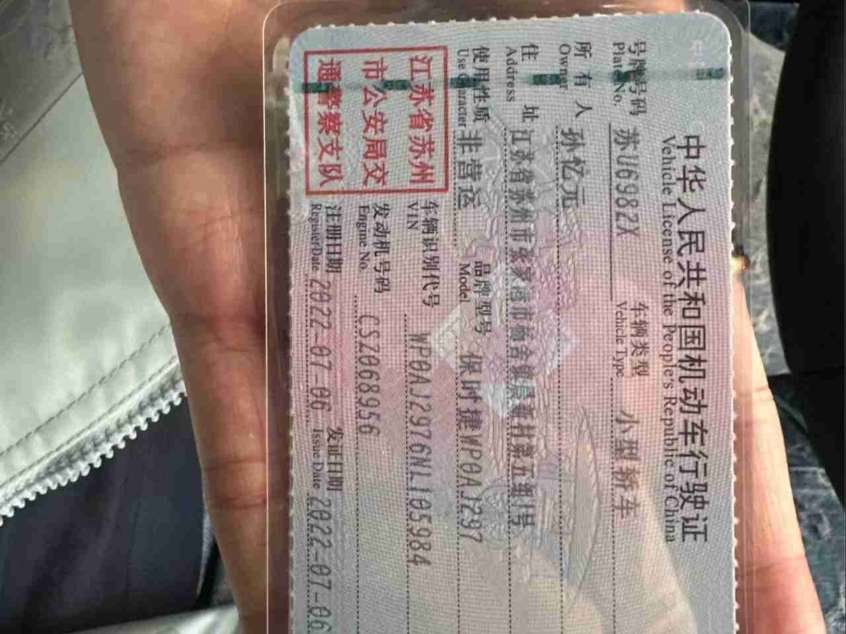 中华人民共和国机动车行驶证
Vehicle License of the People's Republic of China
号牌号码 苏U6982X 车辆类型 小型轿车
Plate No. Vehicle Type
所有人 孙忆元
Owner
住址 江苏省苏州市张家港市杨舍镇 新村第五组1号
Address
使用性质 非营运 品牌型号 保时捷WP0AJ297
Use Character Model
江苏省苏州
市公安局交
通警察支队
车辆识别代号 WP0AJ2976NL105984
VIN
发动机号码 CSZ068956
Engine No.
注册日期 2022-07-06 发证日期 2022-07-06
Register Date Issue Date